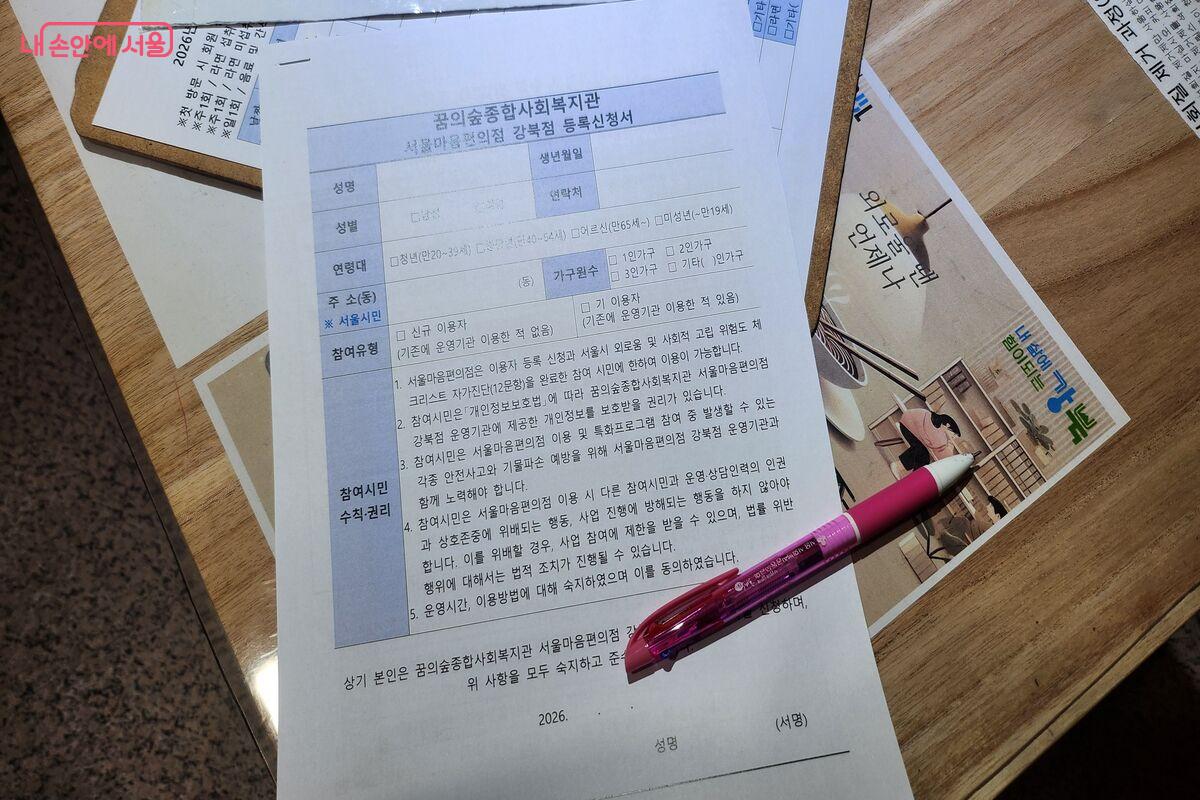 내 손안에 서울
2026년
※첫 방문 시 회원
※주1회 / 라면 섭취
※주1회 / 라면 미섭
※일1회 / 음료 및 간
꿈의숲종합사회복지관
서울마음편의점 강북점 등록신청서
성명
생년월일
성별
□남성 □여성
연락처
연령대
□청년(만20~39세) □중장년(만40~64세) □어르신(만65세~) □미성년(~만19세)
주 소(동)
※ 서울시민
(동)
가구원수
□ 1인가구 □ 2인가구
□ 3인가구 □ 기타( )인가구
참여유형
□ 신규 이용자
(기존에 운영기관 이용한 적 없음)
□ 기 이용자
(기존에 운영기관 이용한 적 있음)
참여시민
수칙·권리
1. 서울마음편의점은 이용자 등록 신청과 서울시 외로움 및 사회적 고립 위험도 체
크리스트 자가진단(12문항)을 완료한 참여 시민에 한하여 이용이 가능합니다.
2. 참여시민은「개인정보보호법」에 따라 꿈의숲종합사회복지관 서울마음편의점
강북점 운영기관에 제공한 개인정보를 보호받을 권리가 있습니다.
3. 참여시민은 서울마음편의점 이용 및 특화프로그램 참여 중 발생할 수 있는
각종 안전사고와 기물파손 예방을 위해 서울마음편의점 강북점 운영기관과
함께 노력해야 합니다.
4. 참여시민은 서울마음편의점 이용 시 다른 참여시민과 운영·상담인력의 인권
과 상호존중에 위배되는 행동, 사업 진행에 방해되는 행동을 하지 않아야
합니다. 이를 위배할 경우, 사업 참여에 제한을 받을 수 있으며, 법률 위반
행위에 대해서는 법적 조치가 진행될 수 있습니다.
5. 운영시간, 이용방법에 대해 숙지하였으며 이를 동의하였습니다.
상기 본인은 꿈의숲종합사회복지관 서울마음편의점 강
신청하며,
위 사항을 모두 숙지하고 준수
2026. . .
성명
(서명)
□기타
□라면
□기타(
외로울 땐
언제나
내 삶에
힘이되는
강북
제거 과정